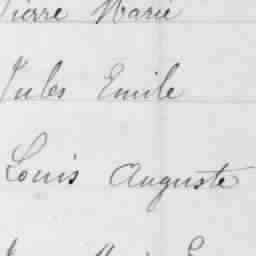 Pierre Marie
Jules Emile
Louis Auguste